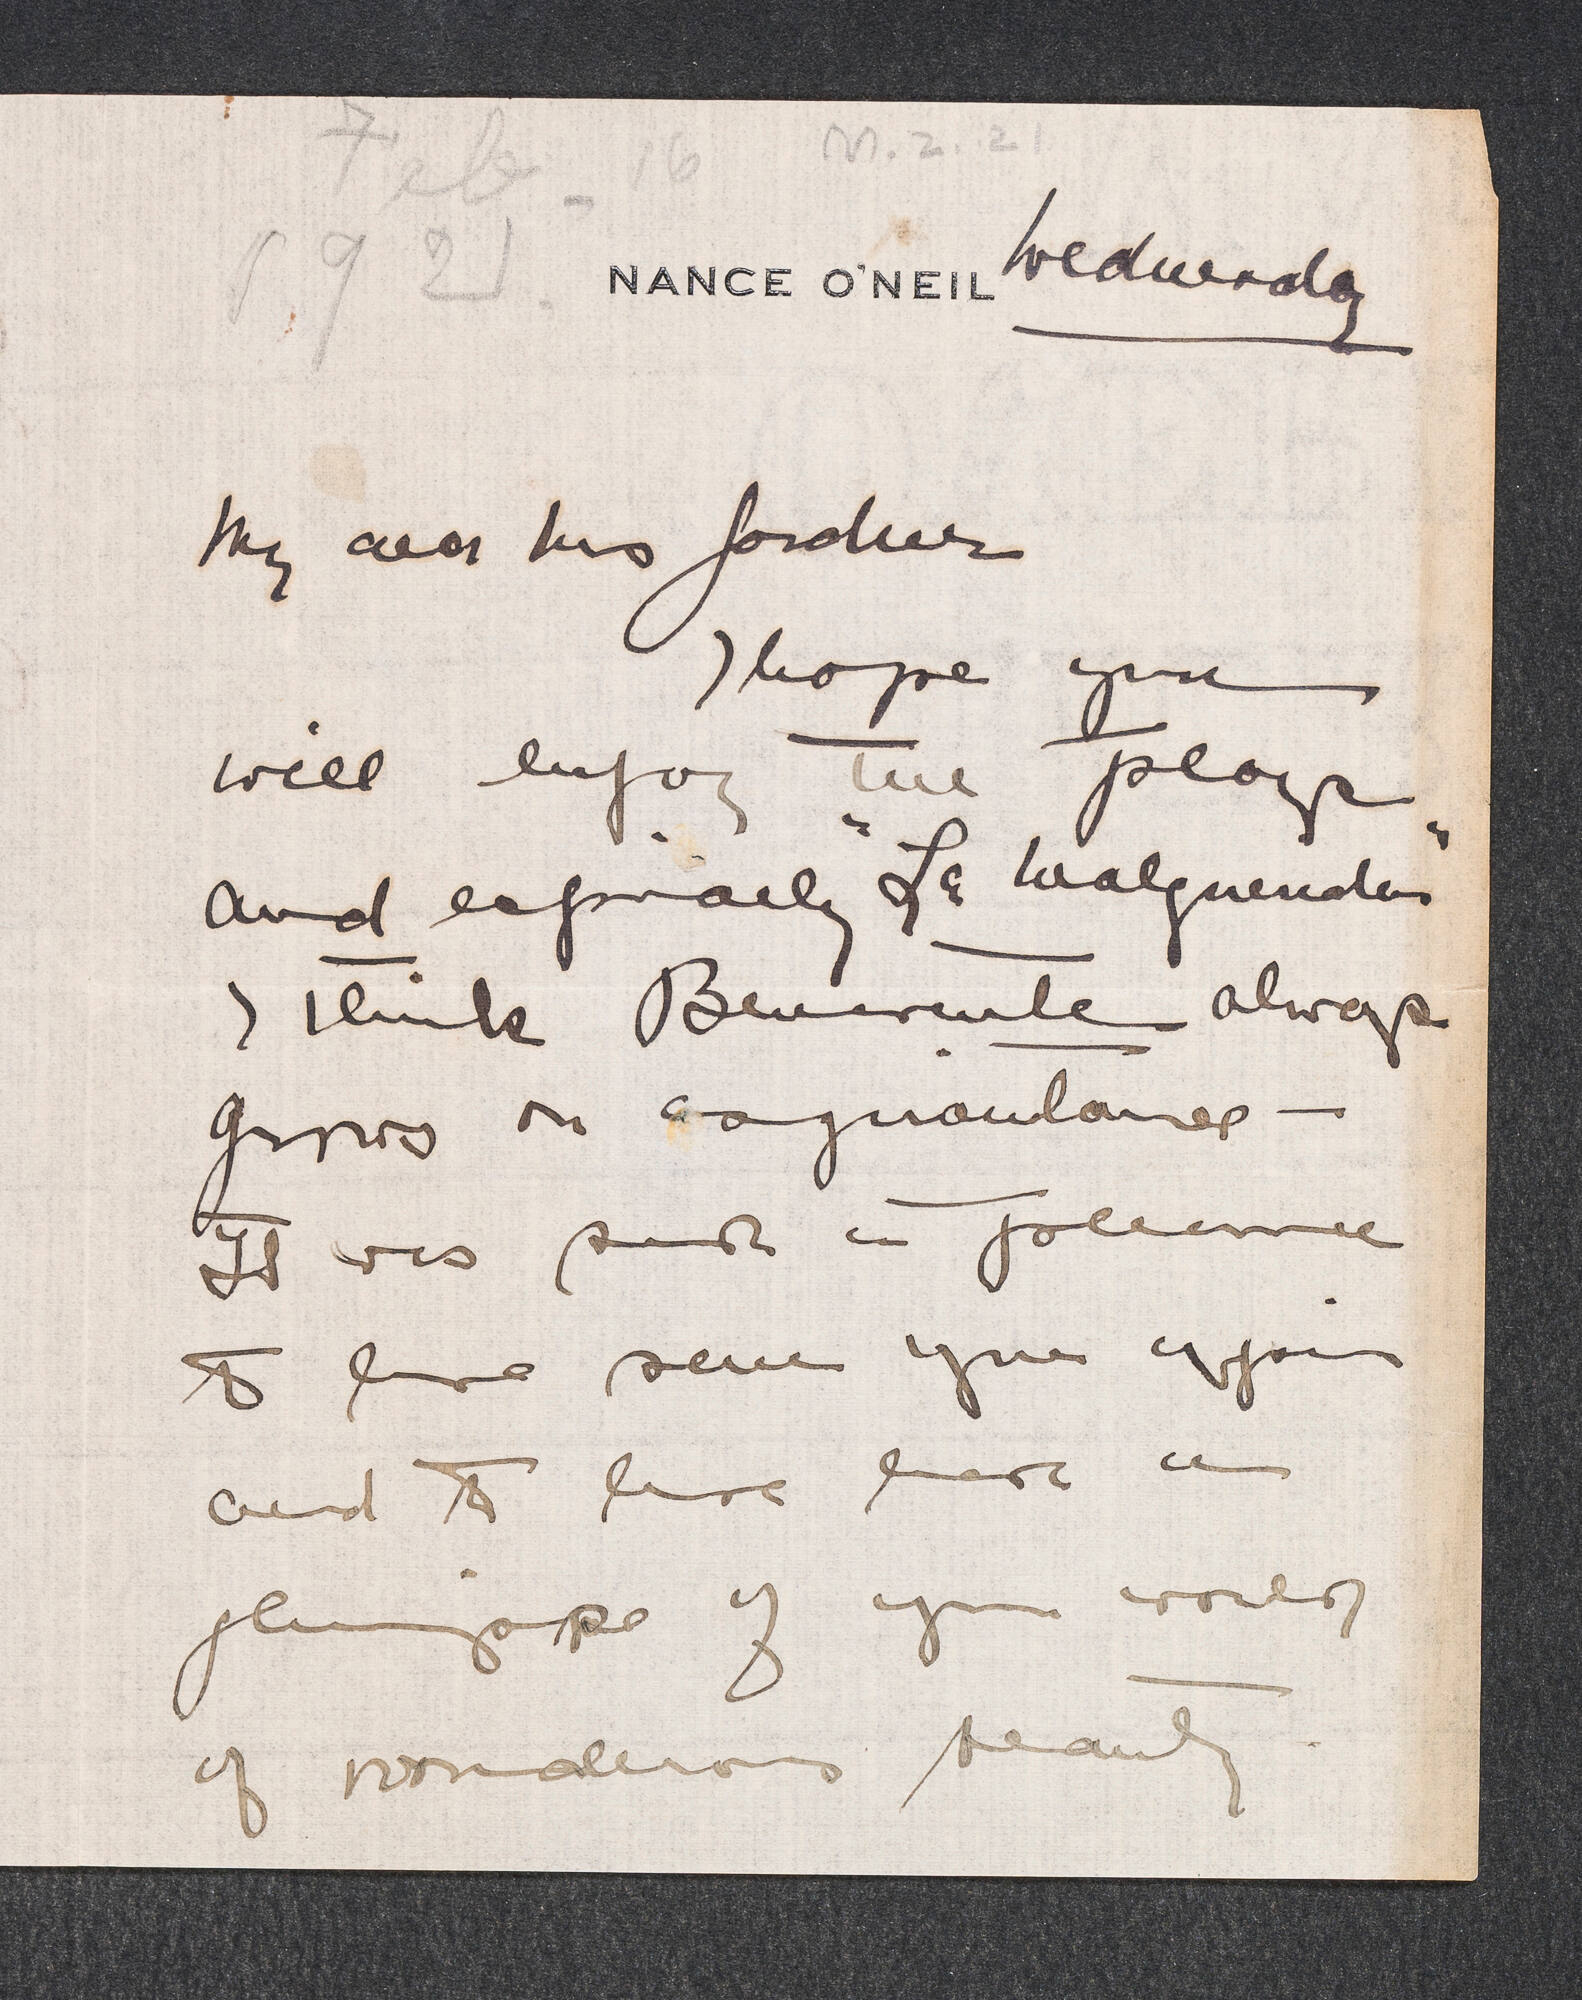 Feb - 16 M. 2. 21
1921.
NANCE O'NEIL Wednesday
My dear Mrs Gardner
I hope you
will enjoy the plays
and especially "La Malquerida"
I think Benavente always
grows on acquaintance —
It was such a pleasure
to have seen you again
and to have had a
glimpse of your world
of wonderous beauty.